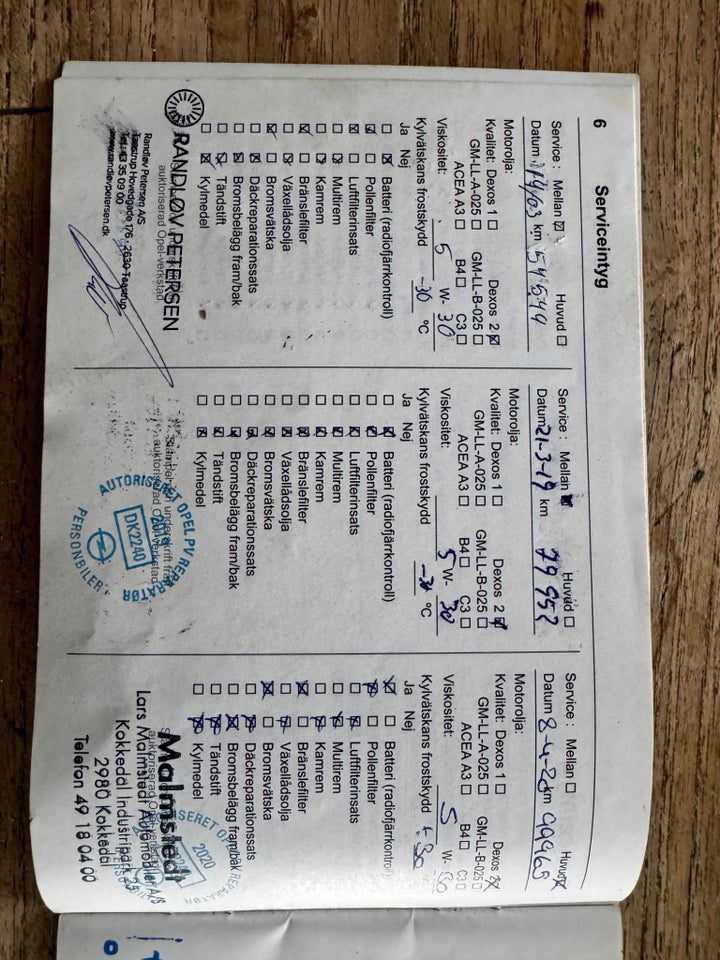 6
Serviceintyg
Service : Mellan ☒ Huvud ☐
Datum km 54649
Motorolja:
Kvalitet: Dexos 1 ☐ Dexos 2 ☒
GM-LL-A-025 ☐ GM-LL-B-025 ☐
ACEA A3 ☐ B4 ☐ C3 ☐
Viskositet: 5 W- 30
Kylvätskans frostskydd -30 °C
Ja Nej
Batteri (radiofjärrkontroll)
Pollenfilter
Luftfilterinsats
Multirem
Kamrem
Bränslefilter
Växellådsolja
Bromsvätska
Däckreparationssats
Bromsbelägg fram/bak
Tändstift
Kylmedel
RANDLØV PETERSEN
auktoriserad Opel-verkstad
Randløv Petersen A/S
Taastrup Hovedgade 176 · 2630 Taastrup
Tel. 43 35 09 00
www.randlovpetersen.dk
Service : Mellan ☒ Huvud ☐
Datum 21-3-19 km 79 952
Motorolja:
Kvalitet: Dexos 1 ☐ Dexos 2 ☒
GM-LL-A-025 ☐ GM-LL-B-025 ☐
ACEA A3 ☐ B4 ☐ C3 ☐
Viskositet: 5 W- 30
Kylvätskans frostskydd °C
Ja Nej
Batteri (radiofjärrkontroll)
Pollenfilter
Luftfilterinsats
Multirem
Kamrem
Bränslefilter
Växellådsolja
Bromsvätska
Däckreparationssats
Bromsbelägg fram/bak
Tändstift
Kylmedel
Stämpel och underskrift från
auktoriserad Opel-verkstad
AUTORISERET OPEL PV REPARATØR
2019
DK2240
PERSONBILER
Service : Mellan ☐ Huvud ☒
Datum 8-4-20 km 99965
Motorolja:
Kvalitet: Dexos 1 ☐ Dexos 2 ☒
GM-LL-A-025 ☐ GM-LL-B-025 ☐
ACEA A3 ☐ B4 ☐ C3 ☐
Viskositet: 5 W- 30
Kylvätskans frostskydd °C
Ja Nej
Batteri (radiofjärrkontroll)
Pollenfilter
Luftfilterinsats
Multirem
Kamrem
Bränslefilter
Växellådsolja
Bromsvätska
Däckreparationssats
Bromsbelägg fram/bak
Tändstift
Kylmedel
2020
Malmstedt
Lars Malmstedt Automobiler A/S
Kokkedal Industripark 25
2980 Kokkedal
Telefon 49 18 04 00